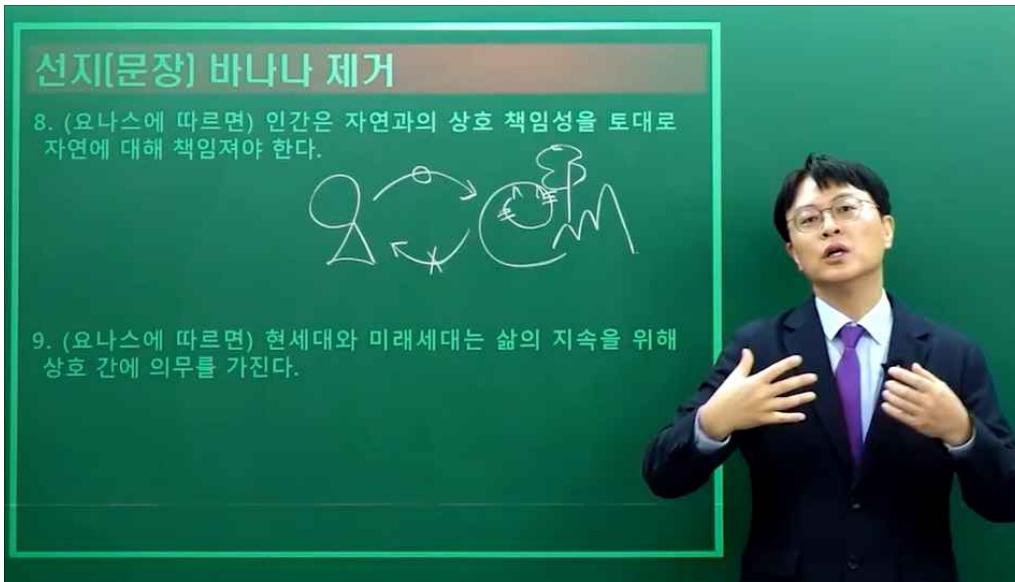 선지[문장] 바나나 제거
8. (요나스에 따르면) 인간은 자연과의 상호 책임성을 토대로
자연에 대해 책임져야 한다.
9. (요나스에 따르면) 현세대와 미래세대는 삶의 지속을 위해
상호 간에 의무를 가진다.